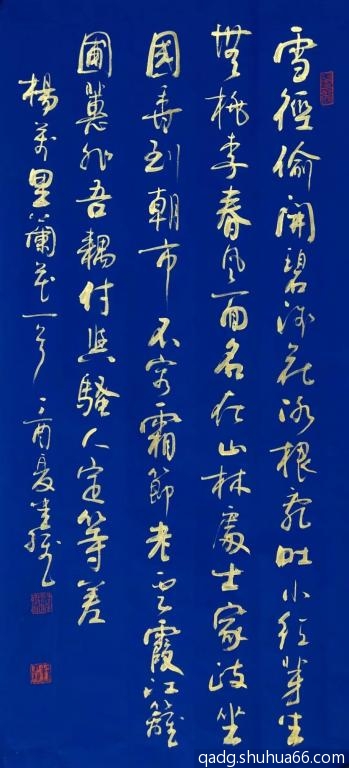 雪徑偷開碧淺花冰根亂吐小紅芽生
無桃李春風面名在山林處士家政坐
國香到朝市不容霜節老云霞江籬
圃蕙非吾耦付與騷人定等差
楊萬里蘭花一首 丁酉夏
qadg.shuhua66.com